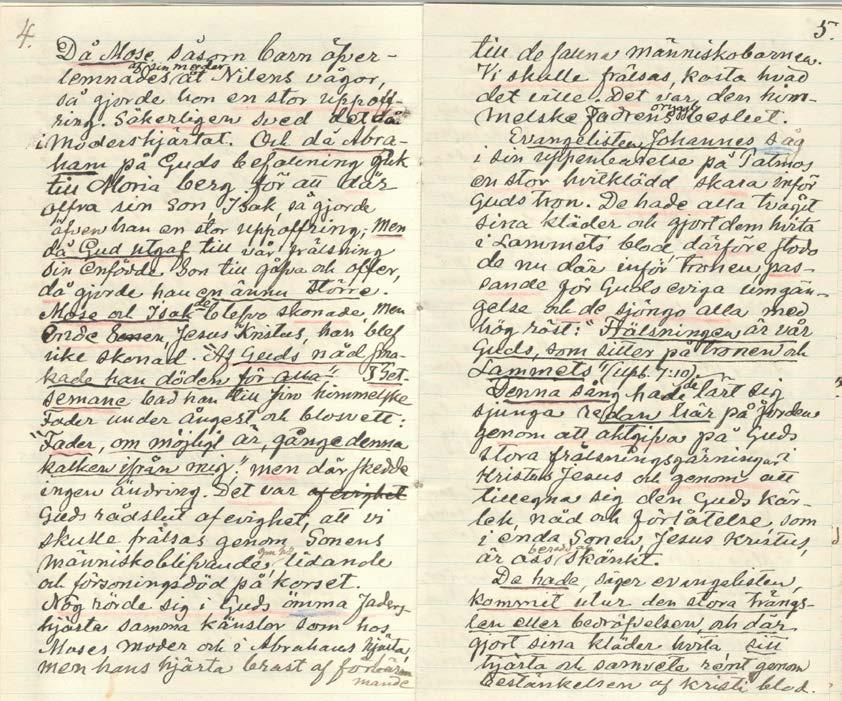 4.
Då Mose, såsom barn öfver-
lemnades af sin moder åt Nilens vågor,
så gjorde hon en stor uppoff-
ring. Säkerligen sved det då
i Modershjärtat. Och då Abra-
ham på Guds befallning gick
till Moria berg för att där
offra sin Son, Isak, så gjorde
äfven han en stor uppoffring; Men
då Gud utgaf till vår frälsning
sin enfödde Son till gåfva och offer,
då gjorde han en ännu större.
Mose och Isak de blefvo skonade, Men
ende Sonen, Jesus Kristus, han blef
icke skonad. "Af Guds nåd sma-
kade han döden för alla". I Get-
semane bad han till sin himmelske
Fader under ångest och blosvett:
"Fader, om möjligt är, gånge denna
kalken ifrån mig", men där skedde
ingen ändring. Det var af evighet
Guds rådslut af evighet, att vi
skulle frälsas genom Sonens
människoblifvande, lidande
och försoningsdöd på korset.
Nog rörde sig i Guds ömma Faders-
hjärta samma känslor som hos
Moses moder och i Abrahams hjärta,
men hans hjärta brast af förbar-
mande
5.
till de fallna människobarnen.
Vi skulle frälsas, kosta hvad
det ville. Det var den him-
melske Fadrens beslut.
Evangelisten Johannes såg
i sin uppenbarelse på Patmos
en stor hvitklädd skara inför
Guds tron. De hade alla tvagit
sina kläder och gjort dem hvita
i Lammets blod därföre stodo
de nu där inför tronen pas-
sande för Guds eviga umgän-
gelse och de sjöngo alla med
hög röst: "Frälsningen är vår
Guds, som sitter på tronen och
Lammets" (Uppb. 7:10).
Denna sång hade de lärt sig
sjunga redan här på jorden
genom att aktgifva på Guds
stora frälsningsgärningar i
Kristus Jesus och genom att
tillegna sig den Guds kär-
lek, nåd och förlåtelse, som
i enda Sonen, Jesus Kristus,
är oss beredd och skänkt.
De hade, säger evangelisten,
kommit utur den stora trångs-
len eller bedröfvelsen, och där
gjort sina kläder hvita, sitt
hjärta och samvete rent genom
bestänkelsen af Kristi blod.